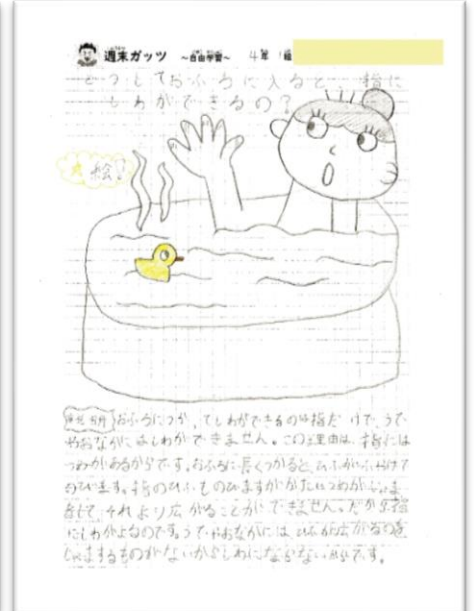 週末ガッツ ~自由学習~ 4年 1組
どうしておふろに入ると、指に
しわができるの?
絵
説明 おふろにつかってしわができるのは指だけで、うで
やおなかにはしわができません。この理由は、指には
つめがあるからです。おふろに長くつかると、ひふがふやけて
のびます。指のひふものびますがかたいつめがじゃま
をして、それより広がることができません。だから、指
にしわがよるのです。うでやおなかには、ひふが広がるのを
じゃまするものがないからしわにならないのです。